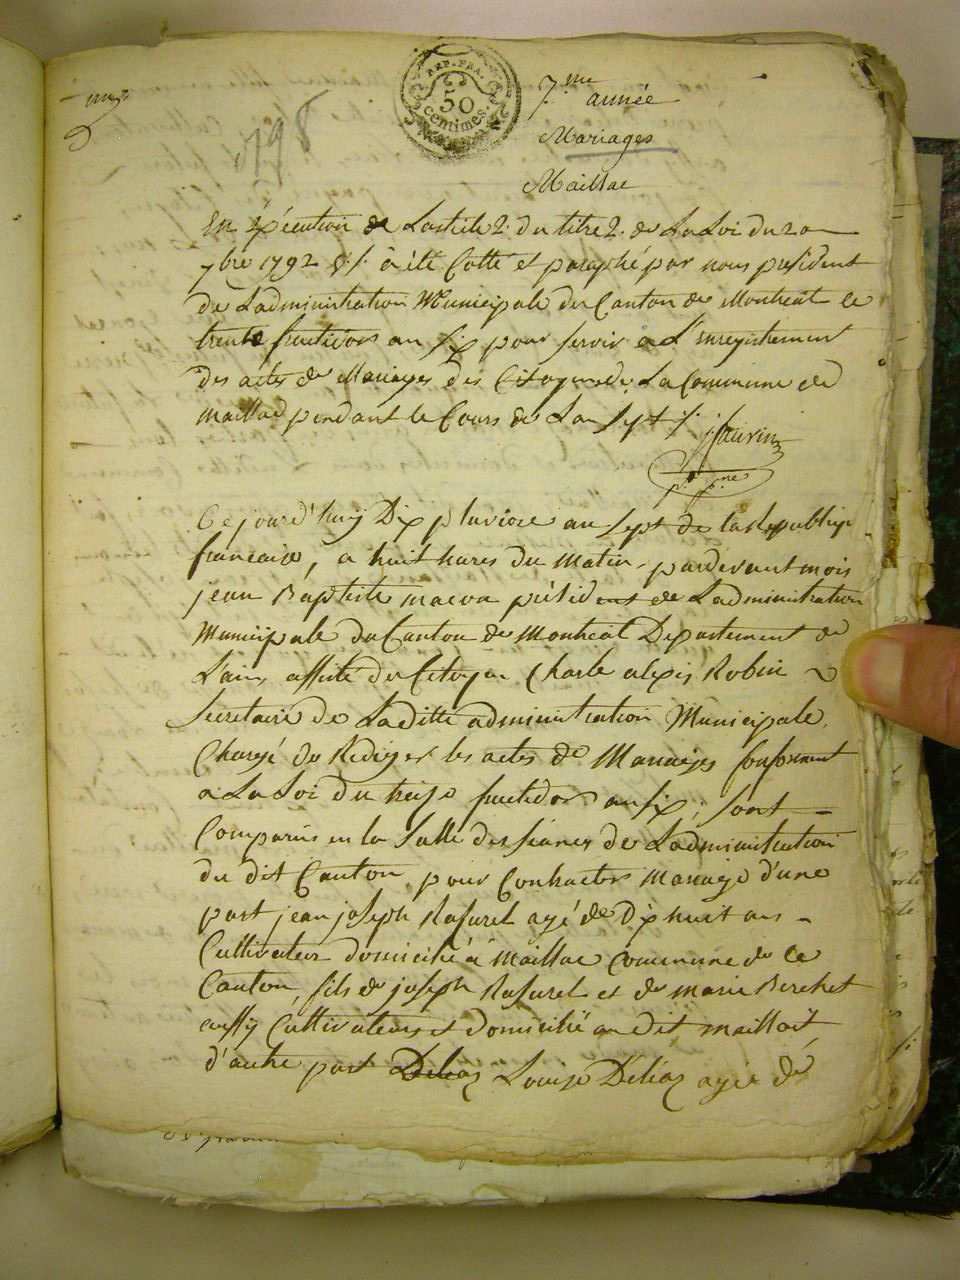 REP. FRA.
50
centimes.
1798
7.me année
Mariages
Maillac
En Exécution de Lartile 2. du titre 2. de La Loi du 20
7bre 1792 à été Cotté et paraphé par nous président
de Ladministration Municipale du Canton de Montreal le
trente fructidor an six pour servir à L'enregistrement
des actes de Mariages des Citoyens de La Commune de
Maillac pendant le Cours de Lan Sept
Cejourd'huy Dix pluviose an sept de la Republiq
francaise, a huit hures du matin, pardevant mois
jean Baptiste macon président de Ladministration
Municipale du Canton de Montreal Departement de
L'ain, assisté du Citoyen Charle alexis Robin
Secretaire de Laditte administration Municipale,
Chargé de Rediger les actes de Mariages Conforment
a La Loi du treize fructidor an six, sont
Comparus en la Salle des séances de Ladministration
du dit Canton, pour Contracter mariage d'une
part jean joseph Rafurel agé de Dix huit ans
Cultivateur domicilié à Maillac Commune de ce
Canton, fils de joseph Rafurel et de marie Berchet
aussy Cultivateurs et domicilié au dit maillait,
d'autre part Deliaz Louise Déliaz agée de